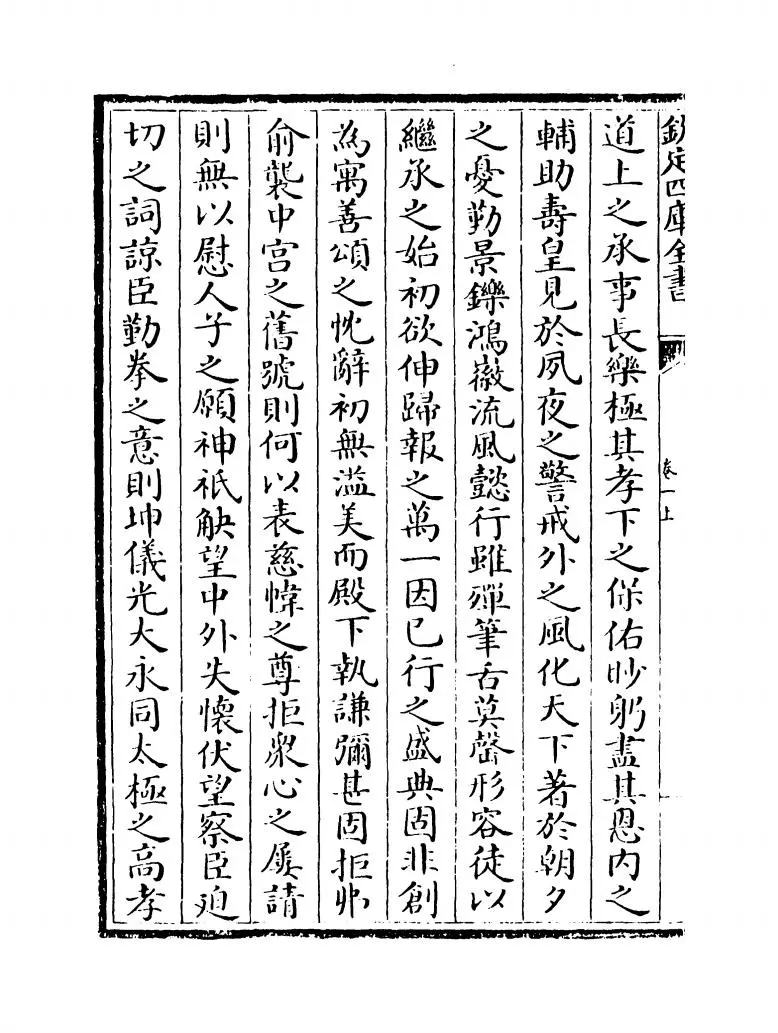 欽定四庫全書
卷一上
道上之承事長樂極其孝下之保佑眇躬盡其恩内之
輔助壽皇見於夙夜之警戒外之風化天下著於朝夕
之憂勤景鑠鴻徽流風懿行雖殫筆舌莫罄形容徒以
繼承之始初欲伸歸報之萬一因已行之盛典固非創
為寓善頌之忱辭初無溢美而殿下執謙彌甚固拒弗
俞襲中宫之舊號則何以表慈幃之尊拒衆心之屢請
則無以慰人子之願神祇觖望中外失懷伏望察臣迫
切之詞諒臣勤拳之意則坤儀光大永同太極之高孝